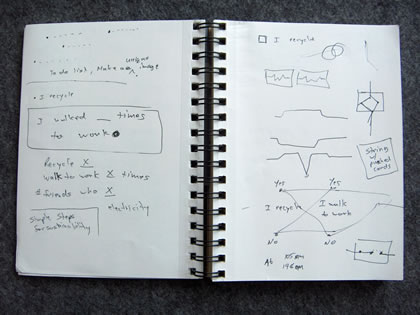 unique
To do list, Make an image
• I recycle
I walked __ times
to work
Recycle X
walk to work X times
# friends who X
electricity
Simple Steps
for sustainability
I recycle
String
w/
pushed
cards
Yes
Yes
I recycle
I walk
to work
No
No
At